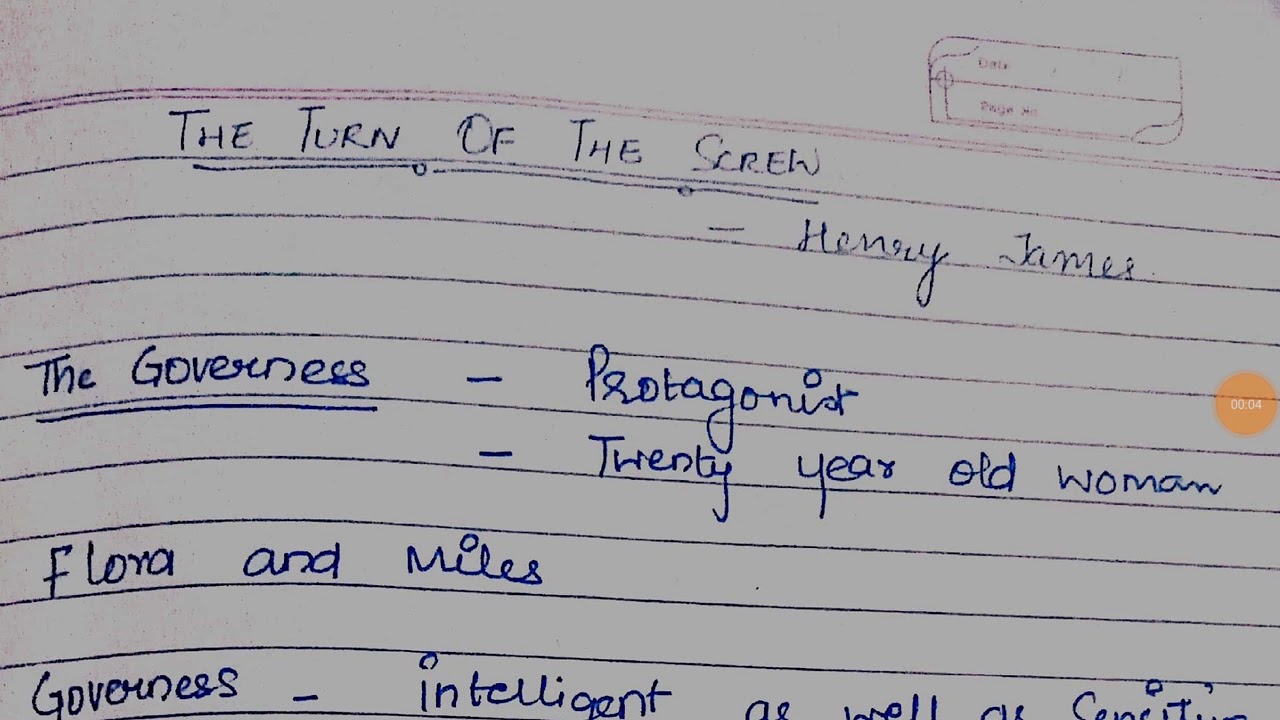 Date
Page No.
THE TURN OF THE SCREW
- Henry James.
The Governess - Protagonist
- Twenty year old woman
Flora and Miles
Governess - intelligent as well as
00:04